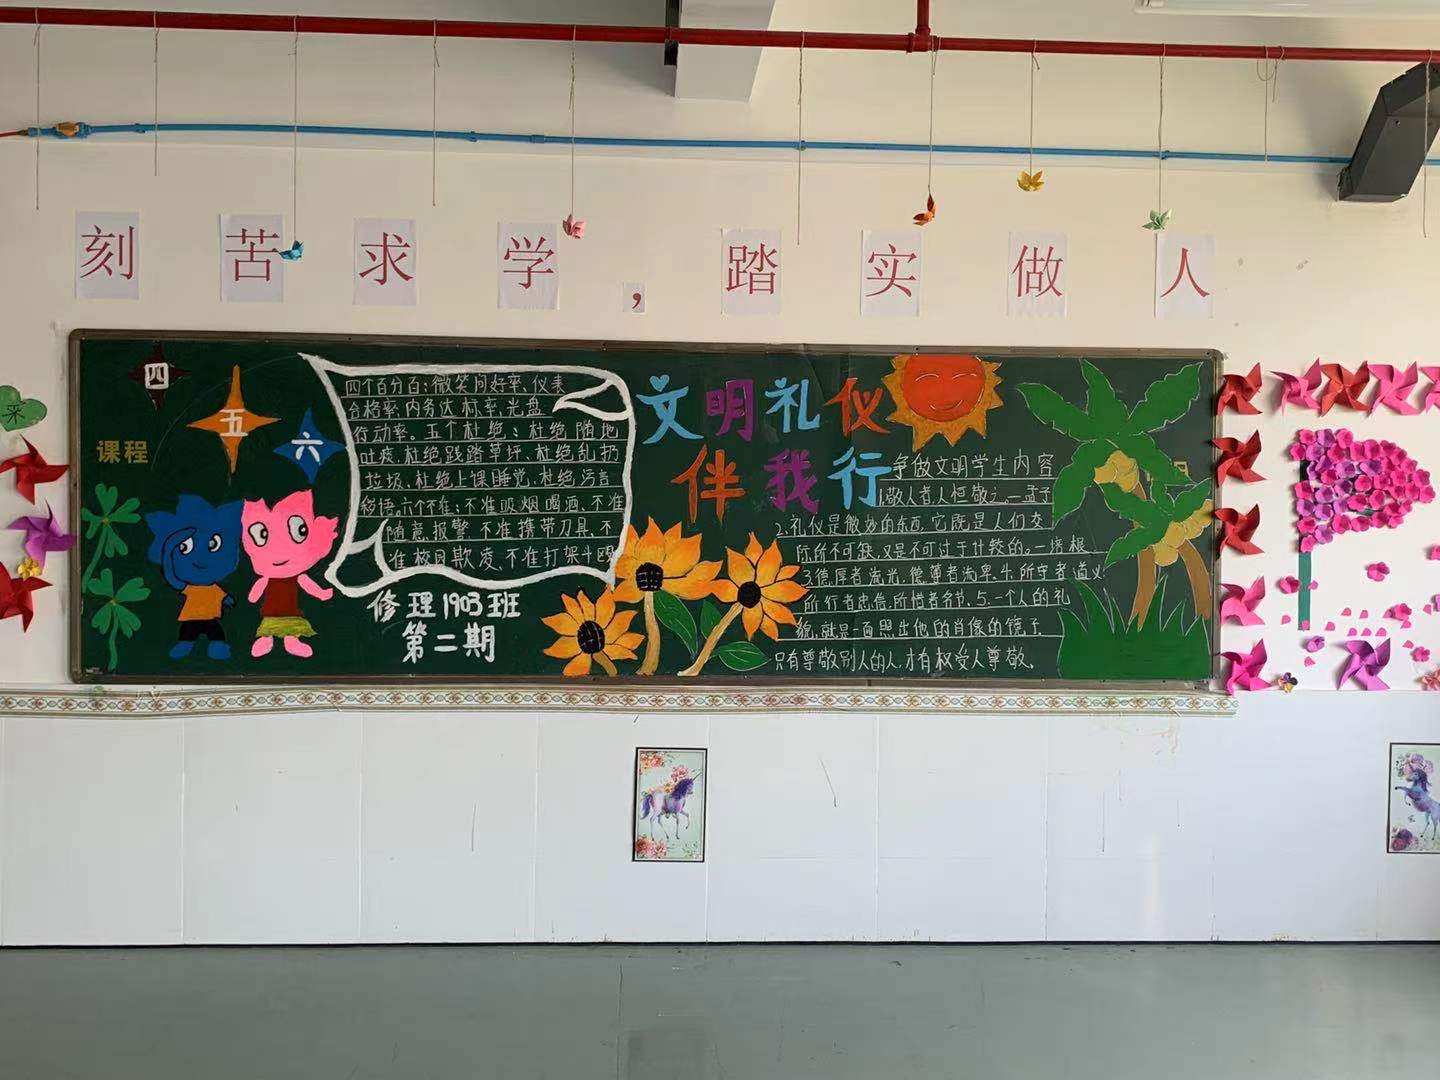 刻苦求学，踏实做人
采
四
五
六
课程
四个百分百：微笑问好率、仪表
合格率、内务达标率、光盘
行动率。五个杜绝：杜绝随地
吐痰、杜绝践踏草坪、杜绝乱扔
垃圾、杜绝上课睡觉、杜绝污言
秽语。六个不准：不准吸烟喝酒、不准
随意报警、不准携带刀具、不
准校园欺凌、不准打架斗殴
修理1903班
第二期
文明礼仪
伴我行
争做文明学生内容
1.敬人者，人恒敬之。—孟子
2.礼仪是微妙的东西，它既是人们交
际所不可缺，又是不可过于计较的。—培根
3.德厚者流光，德薄者流卑。4.所守者道义，
所行者忠信，所惜者名节。5.一个人的礼
貌，就是一面照出他的肖像的镜子.
只有尊敬别人的人，才有权受人尊敬。